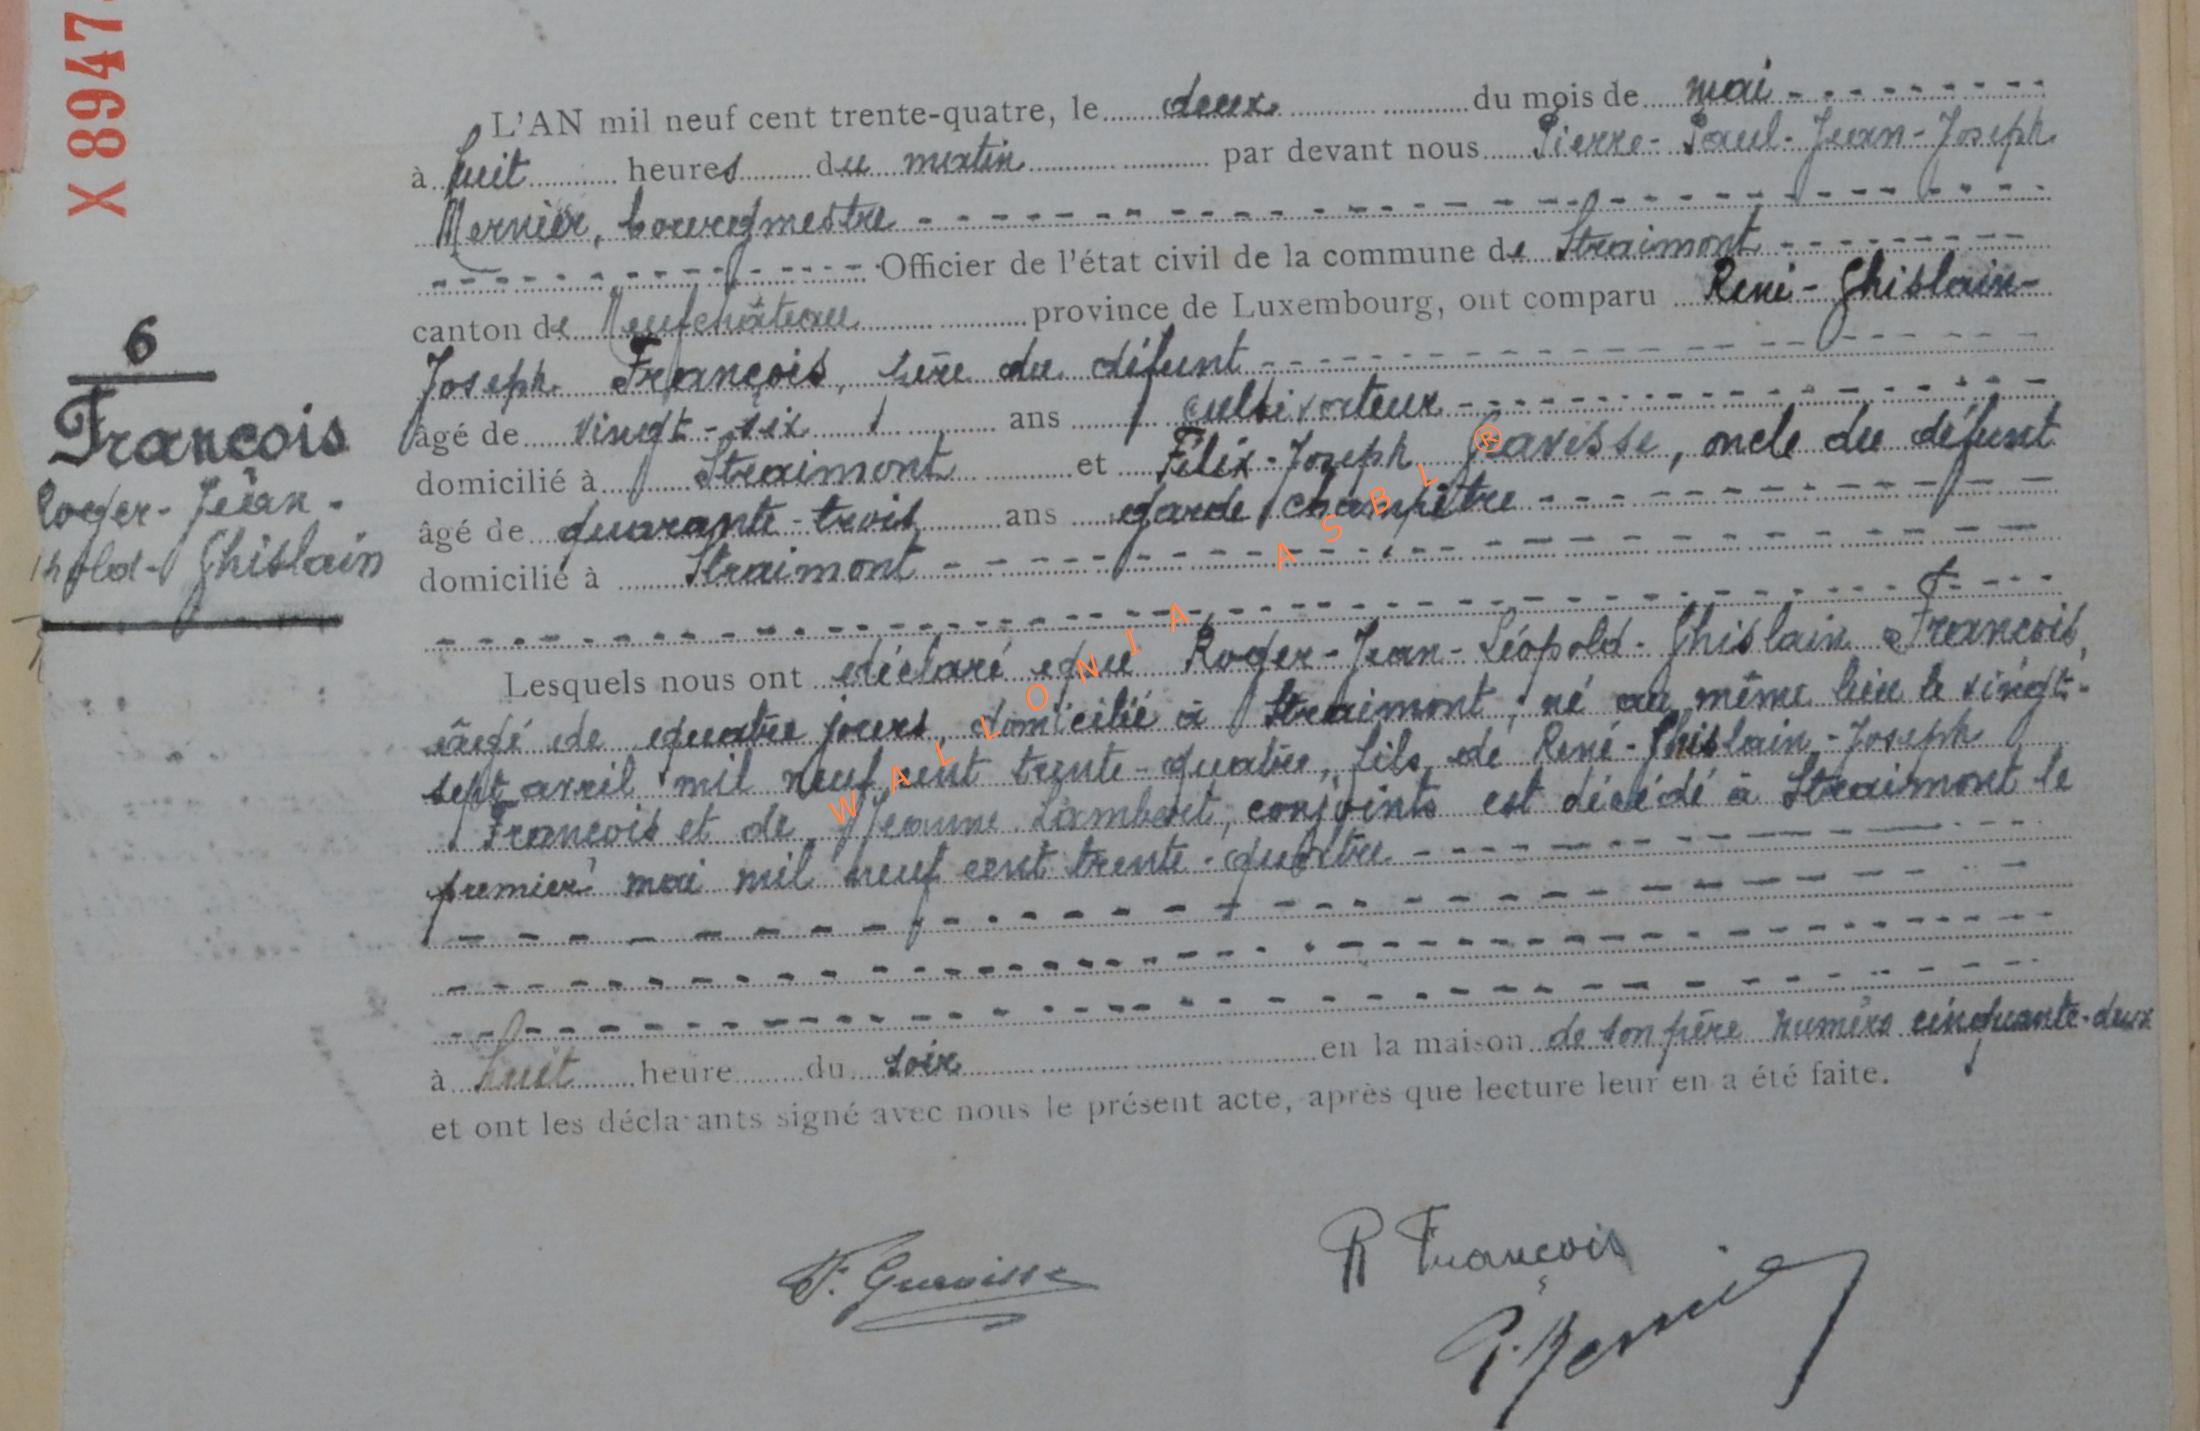 X 8947
L'AN mil neuf cent trente-quatre, le deux du mois de mai
à huit heures du matin par devant nous Pierre-Paul-Jean-Joseph
Mernier, bourgmestre
Officier de l'état civil de la commune de Straimont
canton de Neufchâteau province de Luxembourg, ont comparu René-Ghislain-
Joseph François, père du défunt
âgé de vingt-six ans cultivateur
domicilié à Straimont et Félix-Joseph Gravisse, oncle du défunt
âgé de quarante-trois ans garde champêtre
domicilié à Straimont
6
François
Roger-Jean-
Ghislain
Lesquels nous ont déclaré que Roger-Jean-Léopold-Ghislain François,
âgé de quatre jours, domicilié à Straimont, né au même lieu le vingt-
sept avril mil neuf cent trente-quatre, fils de René-Ghislain-Joseph
François et de Jeanne Lambert, conjoints est décédé à Straimont le
premier mai mil neuf cent trente-quatre
à huit heure du soir en la maison de son père numéro cinquante-deux
et ont les déclarants signé avec nous le présent acte, après que lecture leur en a été faite.
F. Gravisse
R François
P. Mernier
WALLONIA ASBL ®